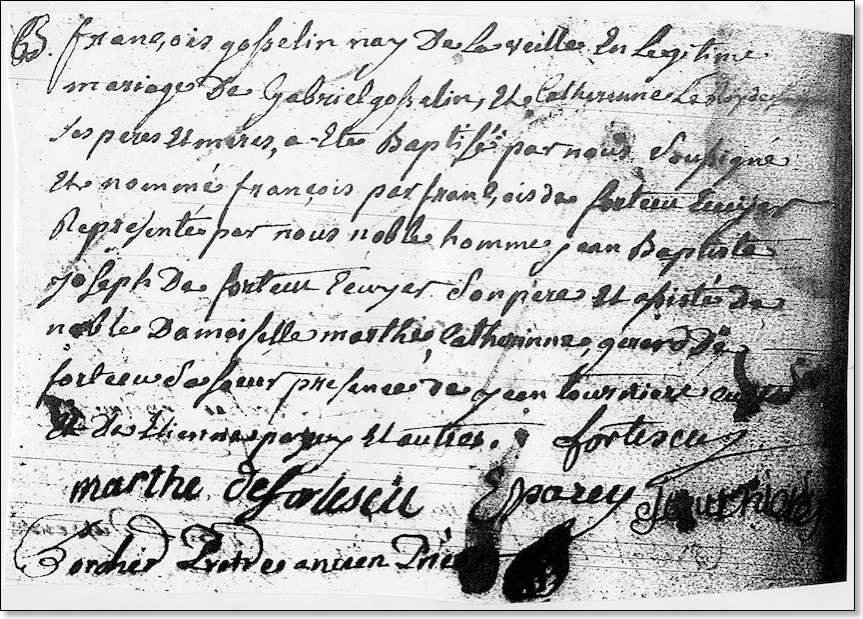 65. françois gosselin nay De La veille En Legitime
mariage De Gabriel gosselin, Et Catherinne
ses peres Et meres, a Eté Baptisé par nous soussigné
Et nommé françois par françois de forteseu Ecuyer
Représenté par nous noble homme jean Baptiste
joseph De forteseu Ecuyer Son pere Et asisté de
noble Damoiselle marthe Catherinne, gerard De
forteseu Sa sœur présence de jean tourniere
Et De Etienne parey Et autres. fortescu
marthe de fortescü E parey J tourniere
Bordier Prètre ancien Prieur